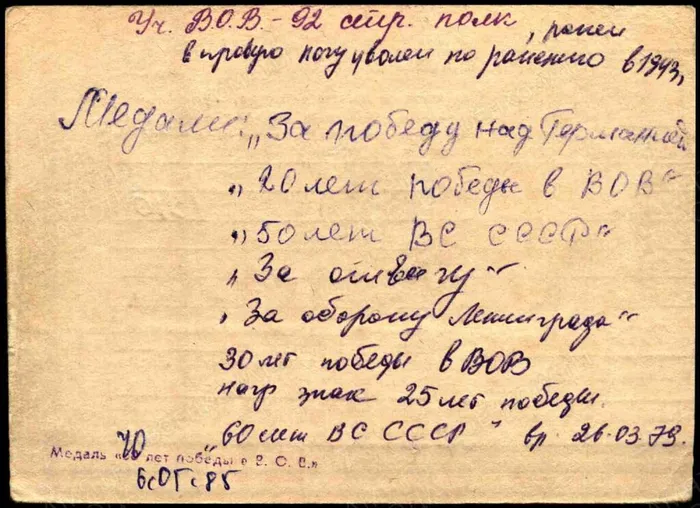 Уч. В.О.В. - 92 стр. полк, ранен
в правую ногу уволен по ранению в 1943,
Медали: „За победу над Германией
„20 лет победы в ВОВ“
„50 лет ВС СССР“
„За отвагу“
„За оборону Ленинграда“
30 лет победы в ВОВ
нагр знак 25 лет победы.
„60 лет ВС СССР“ вр. 26.03.79.
Медаль «40 лет победы в В. О. В.»
6.05.85